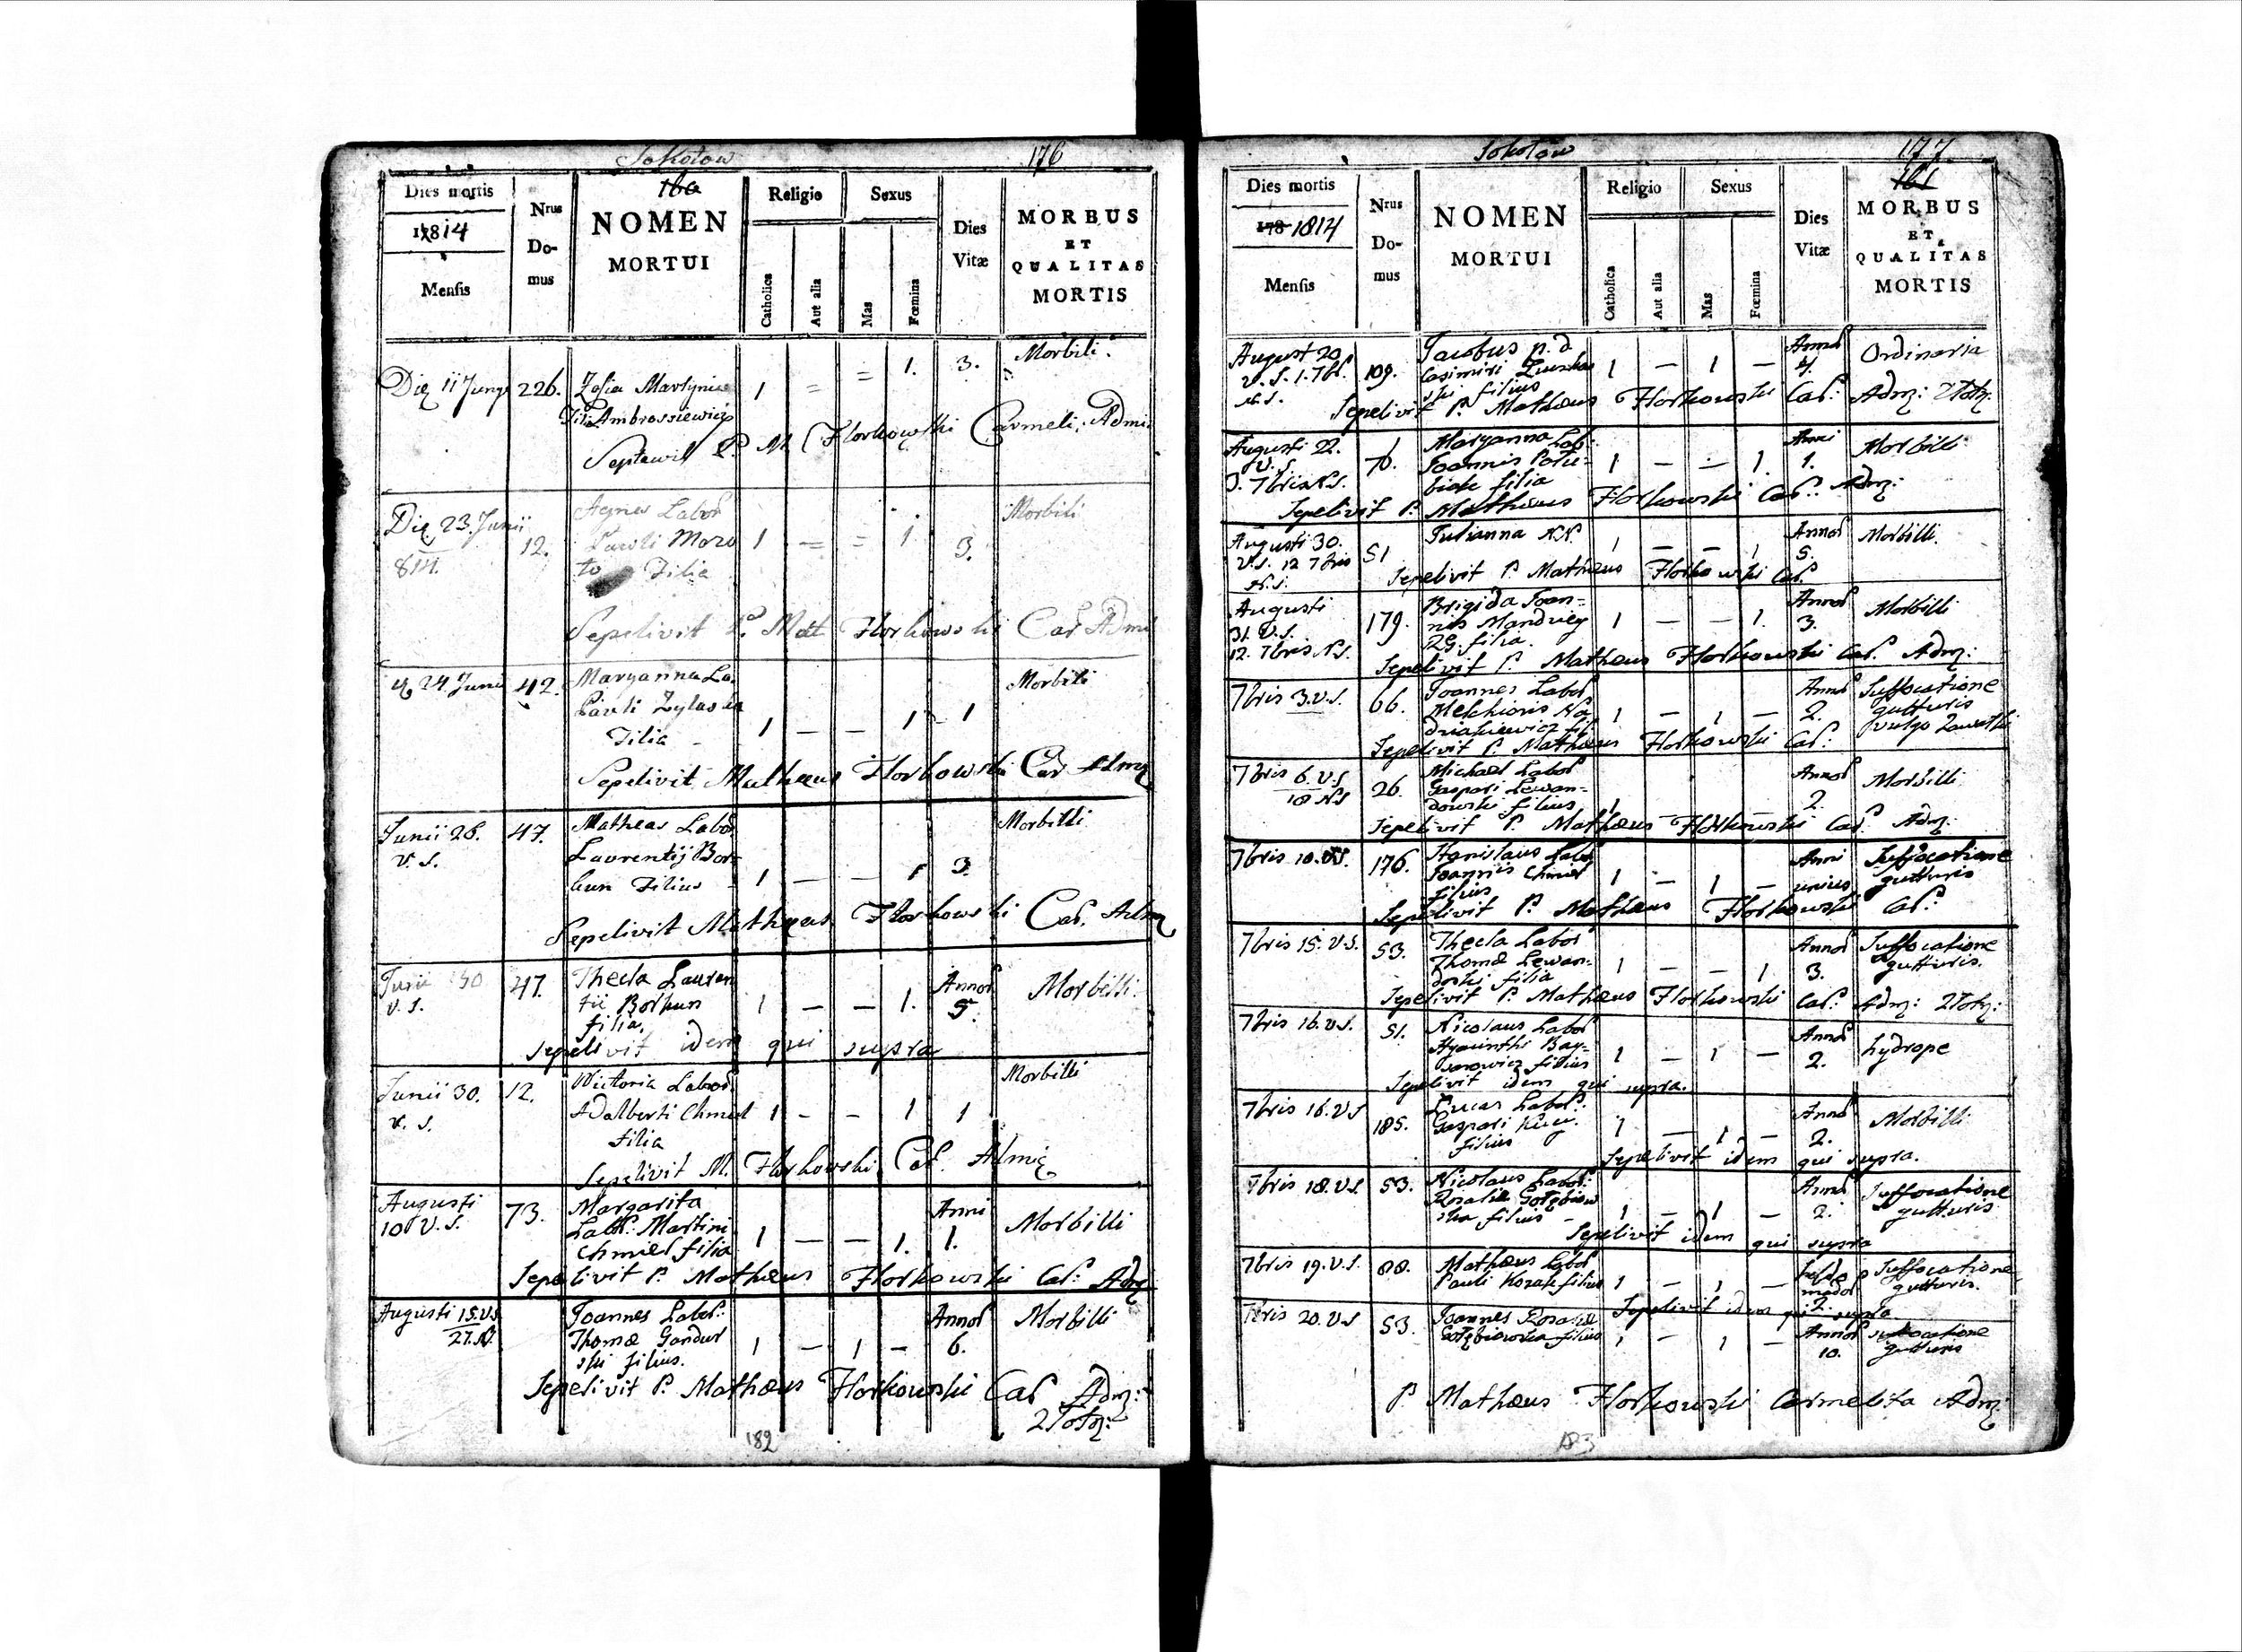 Sokołow 176
Dies mortis
1814
Mensis
Nrus
Do-
mus
160
NOMEN
MORTUI
Religio
Catholica
Aut alia
Sexus
Mas
Fœmina
Dies
Vitæ
MORBUS
ET
QUALITAS
MORTIS
Die 11 Junii 226. Zofia Martyniae 1 = = 1. 3. Morbili.
Filia Ambrosiewicz
P. M. Florkowski Carmeli. Admi
Die 23. Junii 12. Agnes Labor 1 = = 1 3. Morbili
814. Pauli Moro
to Filia
Sepelivit P. Mat Florkowski Car Admi
24 Junii 42. Maryanna La. 1 — — 1 - 1 Morbili
Pauli
Filia
Sepelivit Matheus Florkowski Car Adm
Junii 26. 47. Matheas Labor 1 — — 1 3. Morbilli
V. S. Laurentij Bor-
kun Filius
Sepelivit Matheus Florkowski Car. Adm
Junii 30 47. Thecla Lauren 1 — — 1. Annor 5. Morbilli.
V. S. tii Borkun
filia.
Sepelivit idem qui supra
Junii 30. 12. Wictoria Labor 1 - - 1 1 Morbilli
V. S. Adalberti Chmiel
Filia
Sepelivit M. Florkowski Car. Admi
Augusti 73. Margarita 1 — — 1. Anni 1. Morbilli
10 V. S. Labor: Martini
Chmiel filia
Sepelivit P. Mathæus Florkowski Car: Adm
Augusti 15. V.S. Joannes Labor: 1 — 1 — Annor 6. Morbilli
27. N.S. Thomæ Gandur
ski filius.
Sepelivit P. Mathæus Florkowski Car Adm:
182
Sokołow 177
Dies mortis
178 1814
Mensis
Nrus
Do-
mus
NOMEN
MORTUI
Religio
Catholica
Aut alia
Sexus
Mas
Fœmina
Dies
Vitæ
161
MORBUS
ET
QUALITAS
MORTIS
August 20 109. Jacobus p. d. 1 — 1 — Annor 4. Ordinaria
V. S. 1. 7br. Casimiri
N. S. ski filius
Sepelivit P. Mathæus Florkowski Car: Adm:
Augusti 22. 76. Maryanna Lab: 1 — — 1. Anni 1. Morbilli
V. S. Joannis
3. 7bris N.S. biak filia
Sepelivit P. Mathæus Florkowski Car: Adm:
Augusti 30. 51 Julianna N.N. 1 — — 1 Annor 5. Morbilli.
V.S. 12 7bris
N.S. Sepelivit P. Mathæus Florkowski Car:
Augusti 179. Brigida Joan- 1 — — 1. Annor 3. Morbilli
31. V.S. nis
12. 7bris N.S. filia.
Sepelivit P. Mathæus Florkowski Car. Adm:
7bris 3. V.S. 66. Joannes Labor 1 — 1 — Annor 2. Suffocatione
Melchioris gutturis
fil vulgo
Sepelivit P. Mathæus Florkowski Car:
7bris 6. V.S 26. Michael Labor Annor 2. Morbilli
18 N.S Gaspari Lewan-
dowski filius
Sepelivit P. Mathæus Florkowski Car. Adm:
7bris 10. V.S. 176. Stanislaus Labor 1 — 1 — Anni Suffocatione
Joannis Chmiel unius gutturis
filius
Sepelivit P. Mathæus Florkowski Car:
7bris 15. V.S. 53. Thecla Labor 1 — — 1 Annor 3. Suffocatione
Thomæ Lewan- gutturis.
doski filia
Sepelivit P. Mathæus Florkowski Car: Adm:
7bris 16. V.S. 51. Nicolaus Labor 1 — 1 — Annor 2. hydrope
Hyacinthi Bay-
filius
Sepelivit idem qui supra.
7bris 16. V.S 185. Lucas Labor: 1 — 1 — Annor 2. Morbilli
Gaspari
filius
Sepelivit idem qui supra.
7bris 18. V.S. 53. Nicolaus Labor: 1 — 1 — Annor 2. Suffocatione
Rosaliæ Gołębiow gutturis
ska filius
Sepelivit idem qui supra
7bris 19. V.S. 88. Mathæus Labor 1 — 1 — hebdo Suffocatione
Pauli Kozak filius madar gutturis.
2.
Sepelivit idem qui supra
7bris 20. V.S 53. Joannes Rosaliæ 1 — 1 — Annor 10. suffocatione
Gołębiowska filius gutturis
P Mathæus Florkowski Carmelita Adm:
183